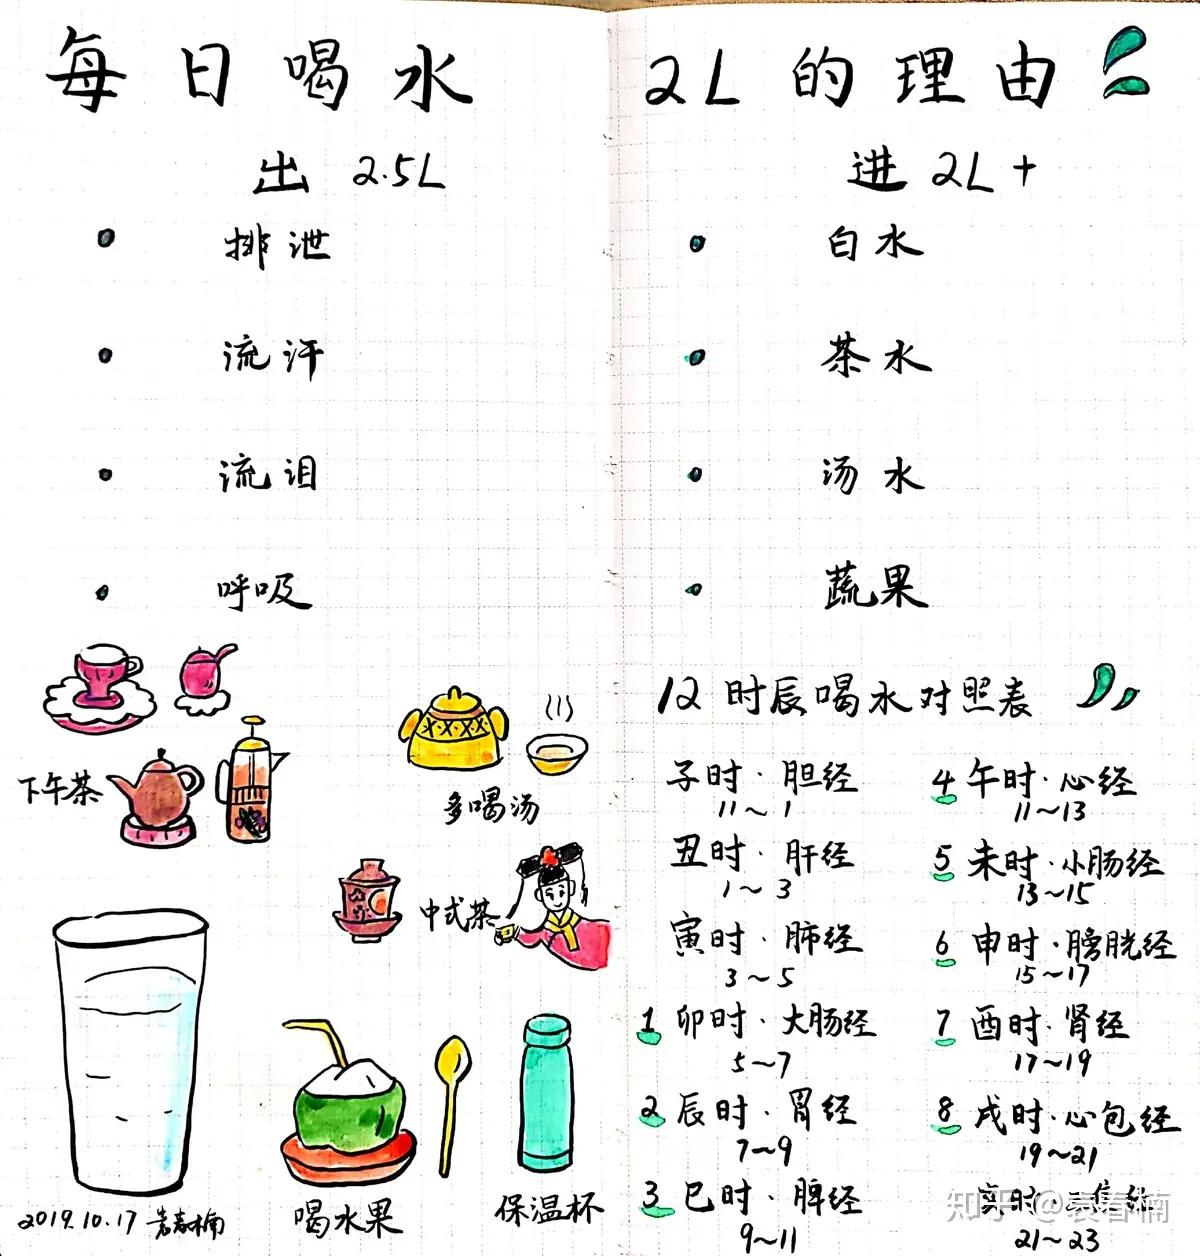 每日喝水 2L的理由
出 2.5L
排泄
流汗
流泪
呼吸
进 2L+
白水
茶水
汤水
蔬果
下午茶
多喝汤
中式茶
喝水果
保温杯
2019.10.17 袁春楠
12时辰喝水对照表
子时·胆经
11~1
丑时·肝经
1~3
寅时·肺经
3~5
1 卯时·大肠经
5~7
2 辰时·胃经
7~9
3 巳时·脾经
9~11
4 午时·心经
11~13
5 未时·小肠经
13~15
6 申时·膀胱经
15~17
7 酉时·肾经
17~19
8 戌时·心包经
19~21
亥时·三焦经
21~23
知乎 @袁春楠